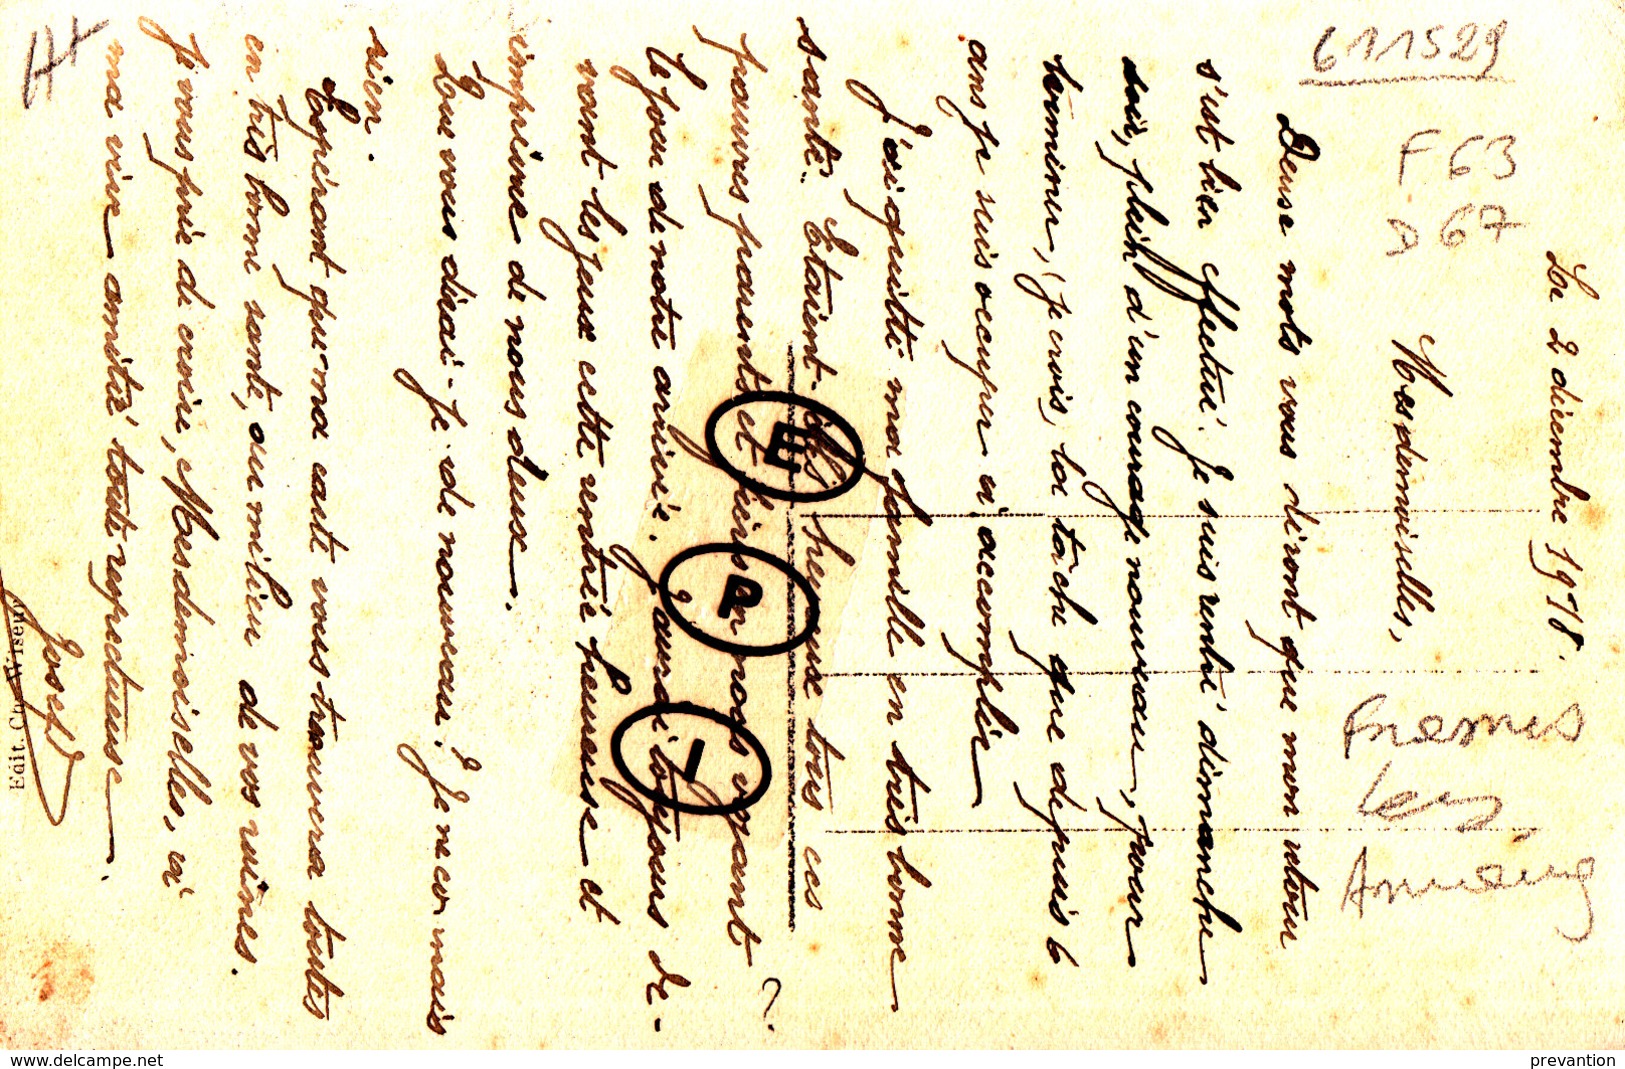 611529
F 63
D 67
Le 2 décembre 1918.
Mesdemoiselles,
Deuse mots vous diront que mon retour
s'est bien effectué. Je suis rentré dimanche
soir, plein d'un courage nouveau, pour
terminer, je crois, la tâche que depuis 6
ans je suis occuper à accomplir
J'ai quitté ma famille en très bonne
santé. Étaient-ils heureux tous ces
pauvres parents et fiers en nous voyant
le jour de notre arrivée. J'aurai toujours de-
vant les yeux cette rentrée heureuse et
imprime de nous deux.
Que vous dirai-je de nouveau? Je ne co mais
rien.
Espérant que ma carte vous trouvera toutes
en très bonne santé, au milieu de vos ruines.
Je vous prie de croire, Mesdemoiselles, à
ma vive amitié toute respectueuse.
Josef
Edit. Ch. Wiseur
E
P
I
?
delcampe.net
prevantion